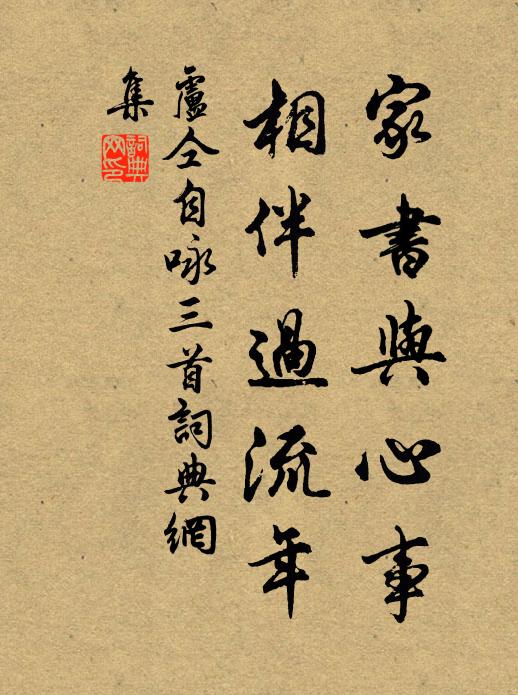 家書與心事
相伴過流年
盧仝自咏三首詞典網
集
詞典
网印